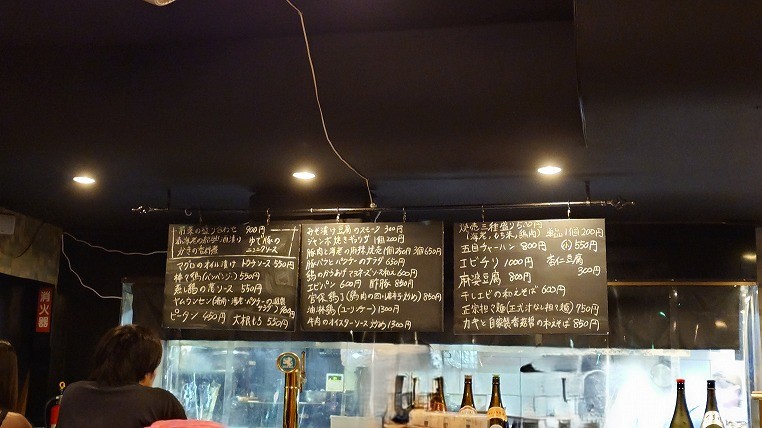 前菜の盛り合わせ 900円
ゆで豚の
ニンニクソース
マグロのオイル漬け トウチソース 550円
棒々鶏(バンバンジー) 550円
蒸し鶏の葱ソース 550円
ピータン 450円 大根もち 550円
みそ漬け豆腐のスモーク 300円
ジャンボ焼きギョウザ 1個 200円
豚肉と海老の 焼売 1個 3個 650円
豚バラとパクチーのサラダ 650円
鶏のから揚げ マヨネーズソース和え 600円
エビパン 600円 酢豚 850円
850円
油淋鶏(ユーリンチー) 1300円
牛肉のオイスターソース炒め 1300円
焼売三種盛り 500円
(海老、もち米、豚肉) 単品 1個 200円
五目チャーハン 800円 (小) 550円
エビチリ 1000円 杏仁豆腐
300円
麻婆豆腐 800円
干しエビの和えそば 600円
正宗担々麺(正式汁なし担々麺) 750円
カキと自家製香辣醤の和えそば 850円
消火器